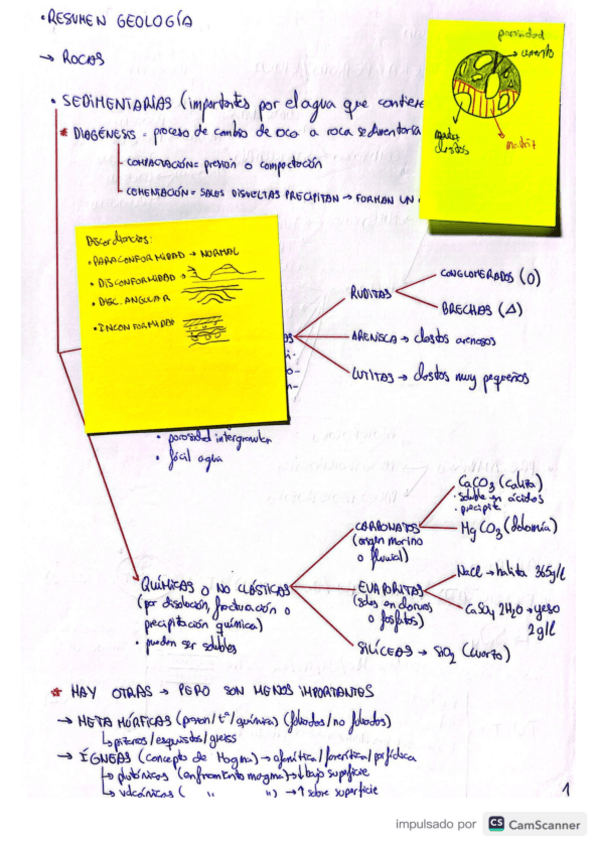 • RESUMEN GEOLOGÍA
→ ROCAS
• SEDIMENTARIAS (importantes por el agua que contiene
* DIAGÉNESIS = proceso de cambio de roca a roca sedimentaria
COMPACTACIÓN = presión o compactación
CEMENTACIÓN = SALES DISUELTAS PRECIPITAN → FORMAN UN
porosidad
cemento
matriz
clastos
Discordancias:
• PARACONFORMIDAD → NORMAL
• DISCONFORMIDAD →
• DISC. ANGULAR
• INCONFORMIDAD
RUDITAS
CONGLOMERADOS (O)
BRECHAS (Δ)
ARENISCA → clastos arenosos
LUTITAS → clastos muy pequeños
• porosidad intergranular
• fácil agua
QUÍMICAS O NO CLÁSTICAS
(por disolución, o
precipitación química)
• pueden ser solubles
CARBONATOS
(origen marino
o fluvial)
CaCO3 (caliza)
• soluble en ácidos
• precipita
MgCO3 (dolomía)
EVAPORITAS
(sales en cloruros
o fosfatos)
NaCl → halita 365g/l
CaSO4 2H2O → yeso
2g/l
SILÍCEAS → SiO2 (cuarzo)
* HAY OTRAS → PERO SON MENOS IMPORTANTES
→ METAMÓRFICAS (presion/tª/química) (foliados/no foliados)
↳ pizarras/esquistos/gneiss
→ ÍGNEAS (concepto de Magma) → afanítica/fanerítica/porfídica
↳ plutónicas (enfriamiento magma) → bajo superficie
↳ volcánicas ( " ") → ↑ sobre superficie
1
impulsado por CS CamScanner